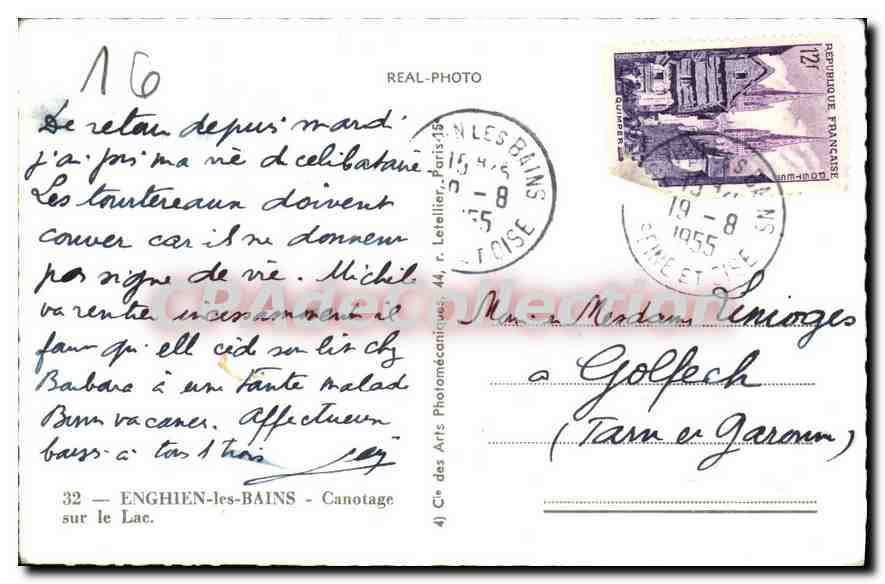 16
REAL-PHOTO
De retour depuis mardi
j'ai pris ma vie de celibataire
Les tourtereaux doivent
couver car ils ne donnent
pas signe de vie. Michele
va rentrer incessamment il
faut qu'elle cède son lit chez
Barbara à une tante malade
Bonnes vacances. Affectueux
baisers à tous 1 trois
32 — ENGHIEN-les-BAINS - Canotage
sur le Lac.
4) Cie des Arts Photomécaniques, 44, r. Letellier, Paris-15e
N LES BAINS
19 - 8
1955
SEINE ET OISE
RÉPUBLIQUE FRANÇAISE
12f
QUIMPER
POSTES
S BAINS
19 - 8
1955
SEINE ET OISE
CPAdeCollection
Mesdames Limoges
a Golfech
(Tarn et Garonne)